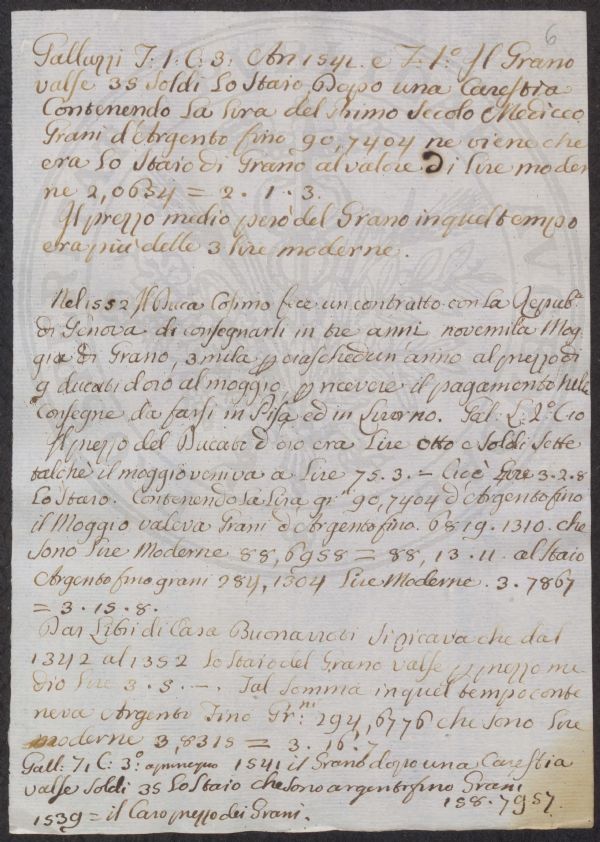 6
Galluzzi T: 1: C: 3: An 1541. e T: 1.º Il Grano
valse 35 Soldi Lo Staio, Dopo una Carestia
Contenendo La Lira del primo Secolo Mediceo
Grani d'Argento fino 90,7404 ne viene che
era Lo Staio di Grano al valore Di Lire moder
ne 2,0634 = 2. 1. 3.
Il prezzo medio però del Grano in quel tempo
era più delle 3 lire moderne.
Nel 1552 Il Duca Cosimo fece un contratto con la Repub.ª
di Genova di consegnarli in tre anni novemila Mog
gia di Grano, 3 mila p ciaschedun' anno al prezzo di
9 ducati d'oro al moggio, p ricevere il pagamento nelle
Consegne da farsi in Pisa, ed in Livorno. Gal: L: 2.º C 10
Il prezzo del Ducato d'oro era Lire Otto e Soldi Sette
talchè il moggio veniva a Lire 75. 3. - Cioè Lire 3. 2. 8
Lo Staio. Contenendo La Lira gr.ni 90,7404 d'Argento fino
il Moggio valeva Grani d'Argento fino. 6819. 1310. che
sono Lire Moderne 88,6958 = 88, 13. 11. al Staio
Argento fino grani 284,1304 Lire Moderne. 3. 7867
= 3. 15. 8.
Dai Libri di Casa Buonarroti si ricava che dal
1342 al 1352 Lo Staio del Grano valse p prezzo me
dio Lire 3. 5. -. Tal somma in quel tempo conte
neva Argento Fino Gr.ni 294,6776 che sono Lire
moderne 3,8315 = 3. 16. 7
Gall: 7, C: 3.º 1541 il Grano dopo una Carestia
valse Soldi 35 Lo Staio che sono argento fino Grani
158. 7957.
1539 = il Caro prezzo dei Grani.